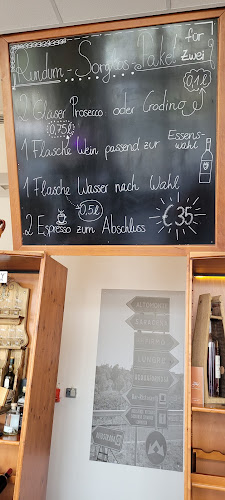 Rundum-Sorglos-Paket für Zwei!
0,1l
2 Gläser Prosecco oder Croding
0,75l
1 Flasche Wein passend zur Essens-
wahl
1 Flasche Wasser nach Wahl
0,5l
2 Espresso zum Abschluss
€ 35,-